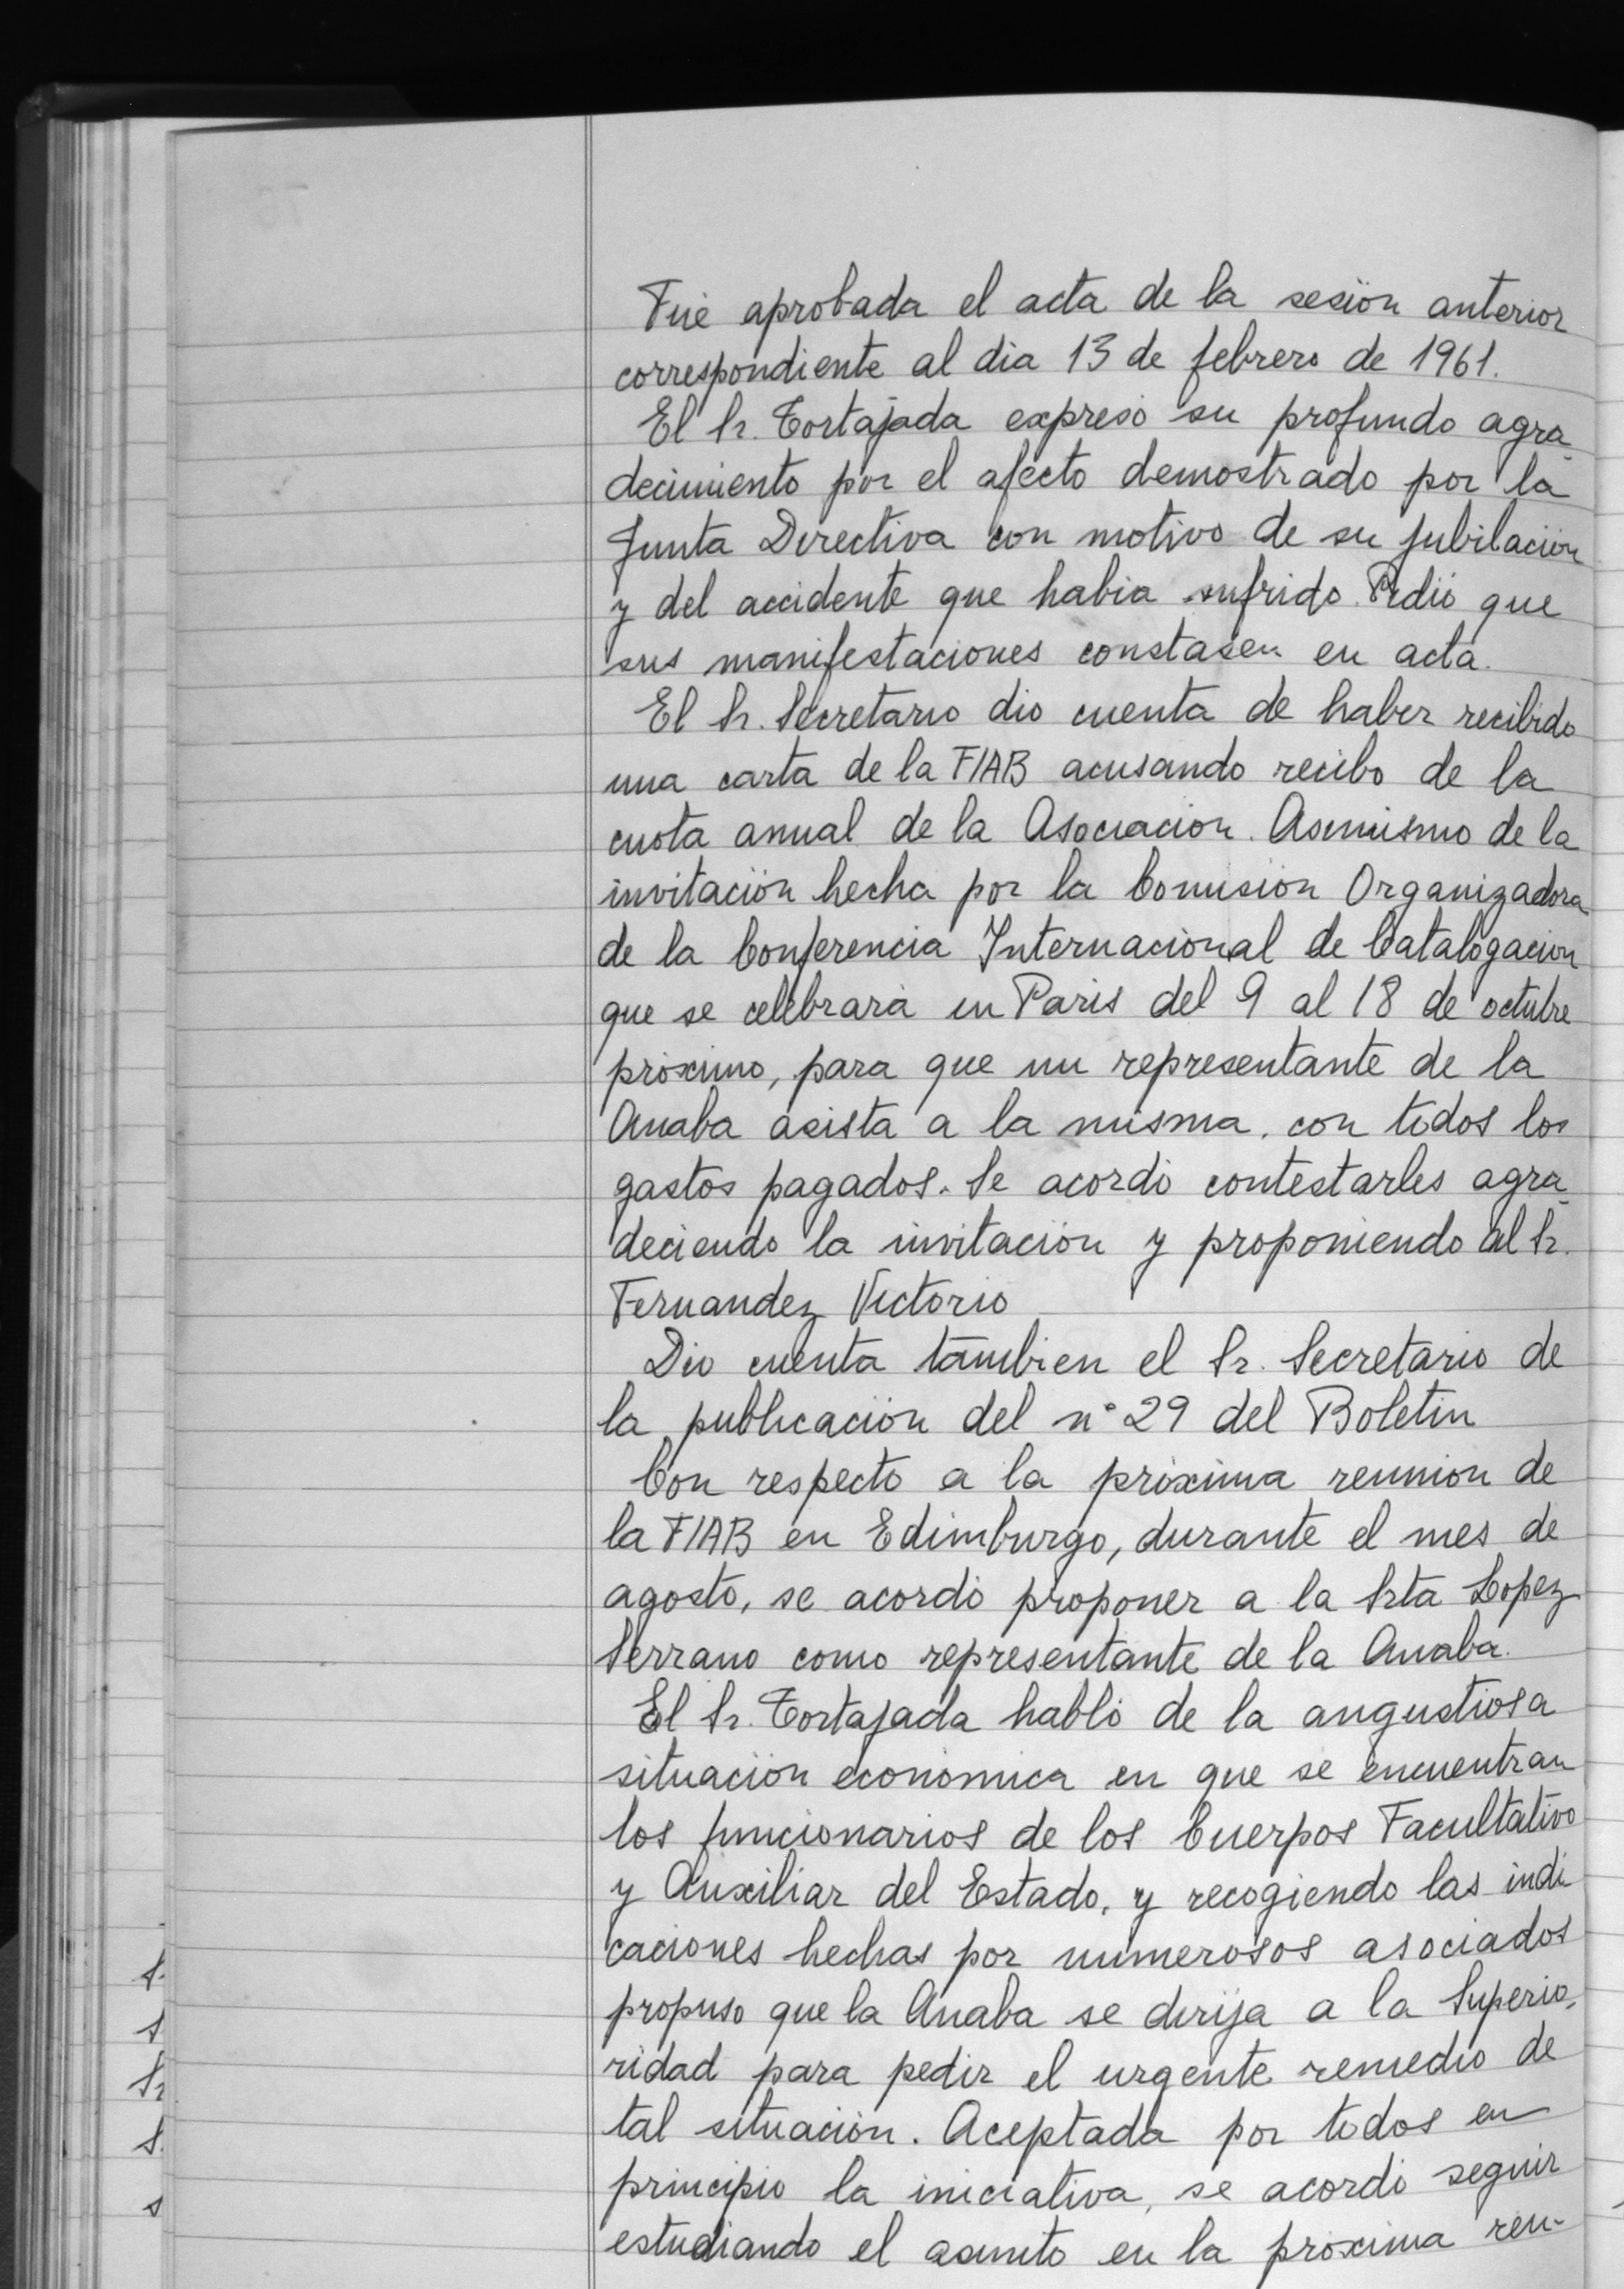 Fué aprobada el acta de la sesión anterior
correspondiente al dia 13 de febrero de 1961.
El Sr. Tortajada expresó su profundo agra-
decimiento por el afecto demostrado por la
Junta Directiva con motivo de su jubilación
y del accidente que habia sufrido. Pidió que
sus manifestaciones constasen en acta.
El Sr. Secretario dio cuenta de haber recibido
una carta de la FIAB acusando recibo de la
cuota anual de la Asociación. Asimismo de la
invitación hecha por la Comisión Organizadora
de la Conferencia Internacional de Catalogación
que se celebrará en Paris del 9 al 18 de octubre
próximo, para que un representante de la
Anaba asista a la misma, con todos los
gastos pagados. Se acordó contestarles agra-
deciendo la invitación y proponiendo al Sr.
Fernandez Victorio
Dio cuenta tambien el Sr. Secretario de
la publicación del nº 29 del Boletin
Con respecto a la próxima reunión de
la FIAB en Edimburgo, durante el mes de
agosto, se acordó proponer a la Srta Lopez
Serrano como representante de la Anaba.
El Sr. Tortajada habló de la angustiosa
situación económica en que se encuentran
los funcionarios de los Cuerpos Facultativo
y Auxiliar del Estado, y recogiendo las indi
caciones hechas por numerosos asociados
propuso que la Anaba se dirija a la Superio-
ridad para pedir el urgente remedio de
tal situación. Aceptada por todos en
principio la iniciativa, se acordó seguir
estudiando el asunto en la próxima reu-